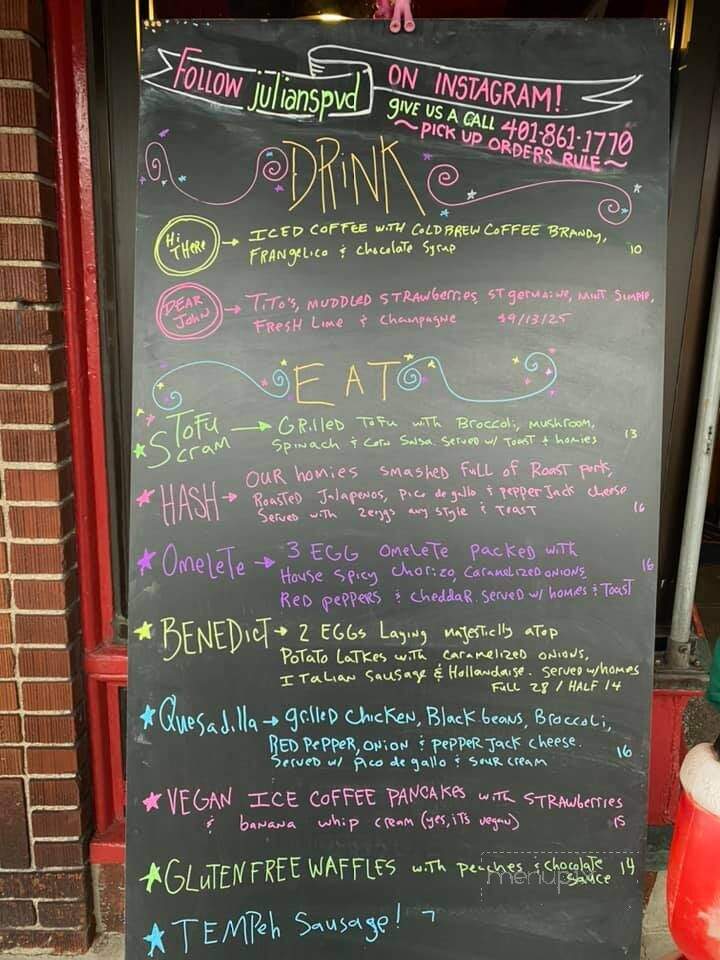 FOLLOW julianspvd ON INSTAGRAM!
GIVE US A CALL 401-861-1770
~PICK UP ORDERS RULE~
DRINK
Hi THERE → ICED COFFEE WITH COLD BREW COFFEE BRANDY,
FRANGELICO & CHOCOLATE SYRUP 10
DEAR JOHN → TITO'S, MUDDLED STRAWBERRIES, ST GERMAINE, MINT SIMPLE,
FRESH LIME & CHAMPAGNE 49/13/25
EAT
TOFU SCRAM → GRILLED TOFU WITH BROCCOLI, MUSHROOM,
SPINACH & CORN SALSA SERVED W/ TOAST & HOMIES 13
HASH → OUR HOMIES SMASHED FULL OF ROAST PORK,
ROASTED JALAPENOS, PICO DE GALLO & PEPPER JACK CHEESE
SERVED WITH 2 EGGS ANY STYLE & TOAST 16
OMELETE → 3 EGG OMELETE PACKED WITH 16
HOUSE SPICY CHORIZO, CARAMELIZED ONIONS,
RED PEPPERS & CHEDDAR. SERVED W/ HOMIES & TOAST
BENEDICT → 2 EGGS LAYING MAJESTICALLY ATOP
POTATO LATKES WITH CARAMELIZED ONIONS,
ITALIAN SAUSAGE & HOLLANDAISE. SERVED W/ HOMIES
FULL 28 / HALF 14
QUESADILLA → GRILLED CHICKEN, BLACK BEANS, BROCCOLI,
RED PEPPER, ONION & PEPPER JACK CHEESE.
SERVED W/ PICO DE GALLO & SOUR CREAM 16
VEGAN ICE COFFEE PANCAKES WITH STRAWBERRIES
& BANANA WHIP CREAM (YES, ITS VEGAN) 15
GLUTEN FREE WAFFLES WITH PEACHES & CHOCOLATE SAUCE 14
TEMPEH SAUSAGE! 7